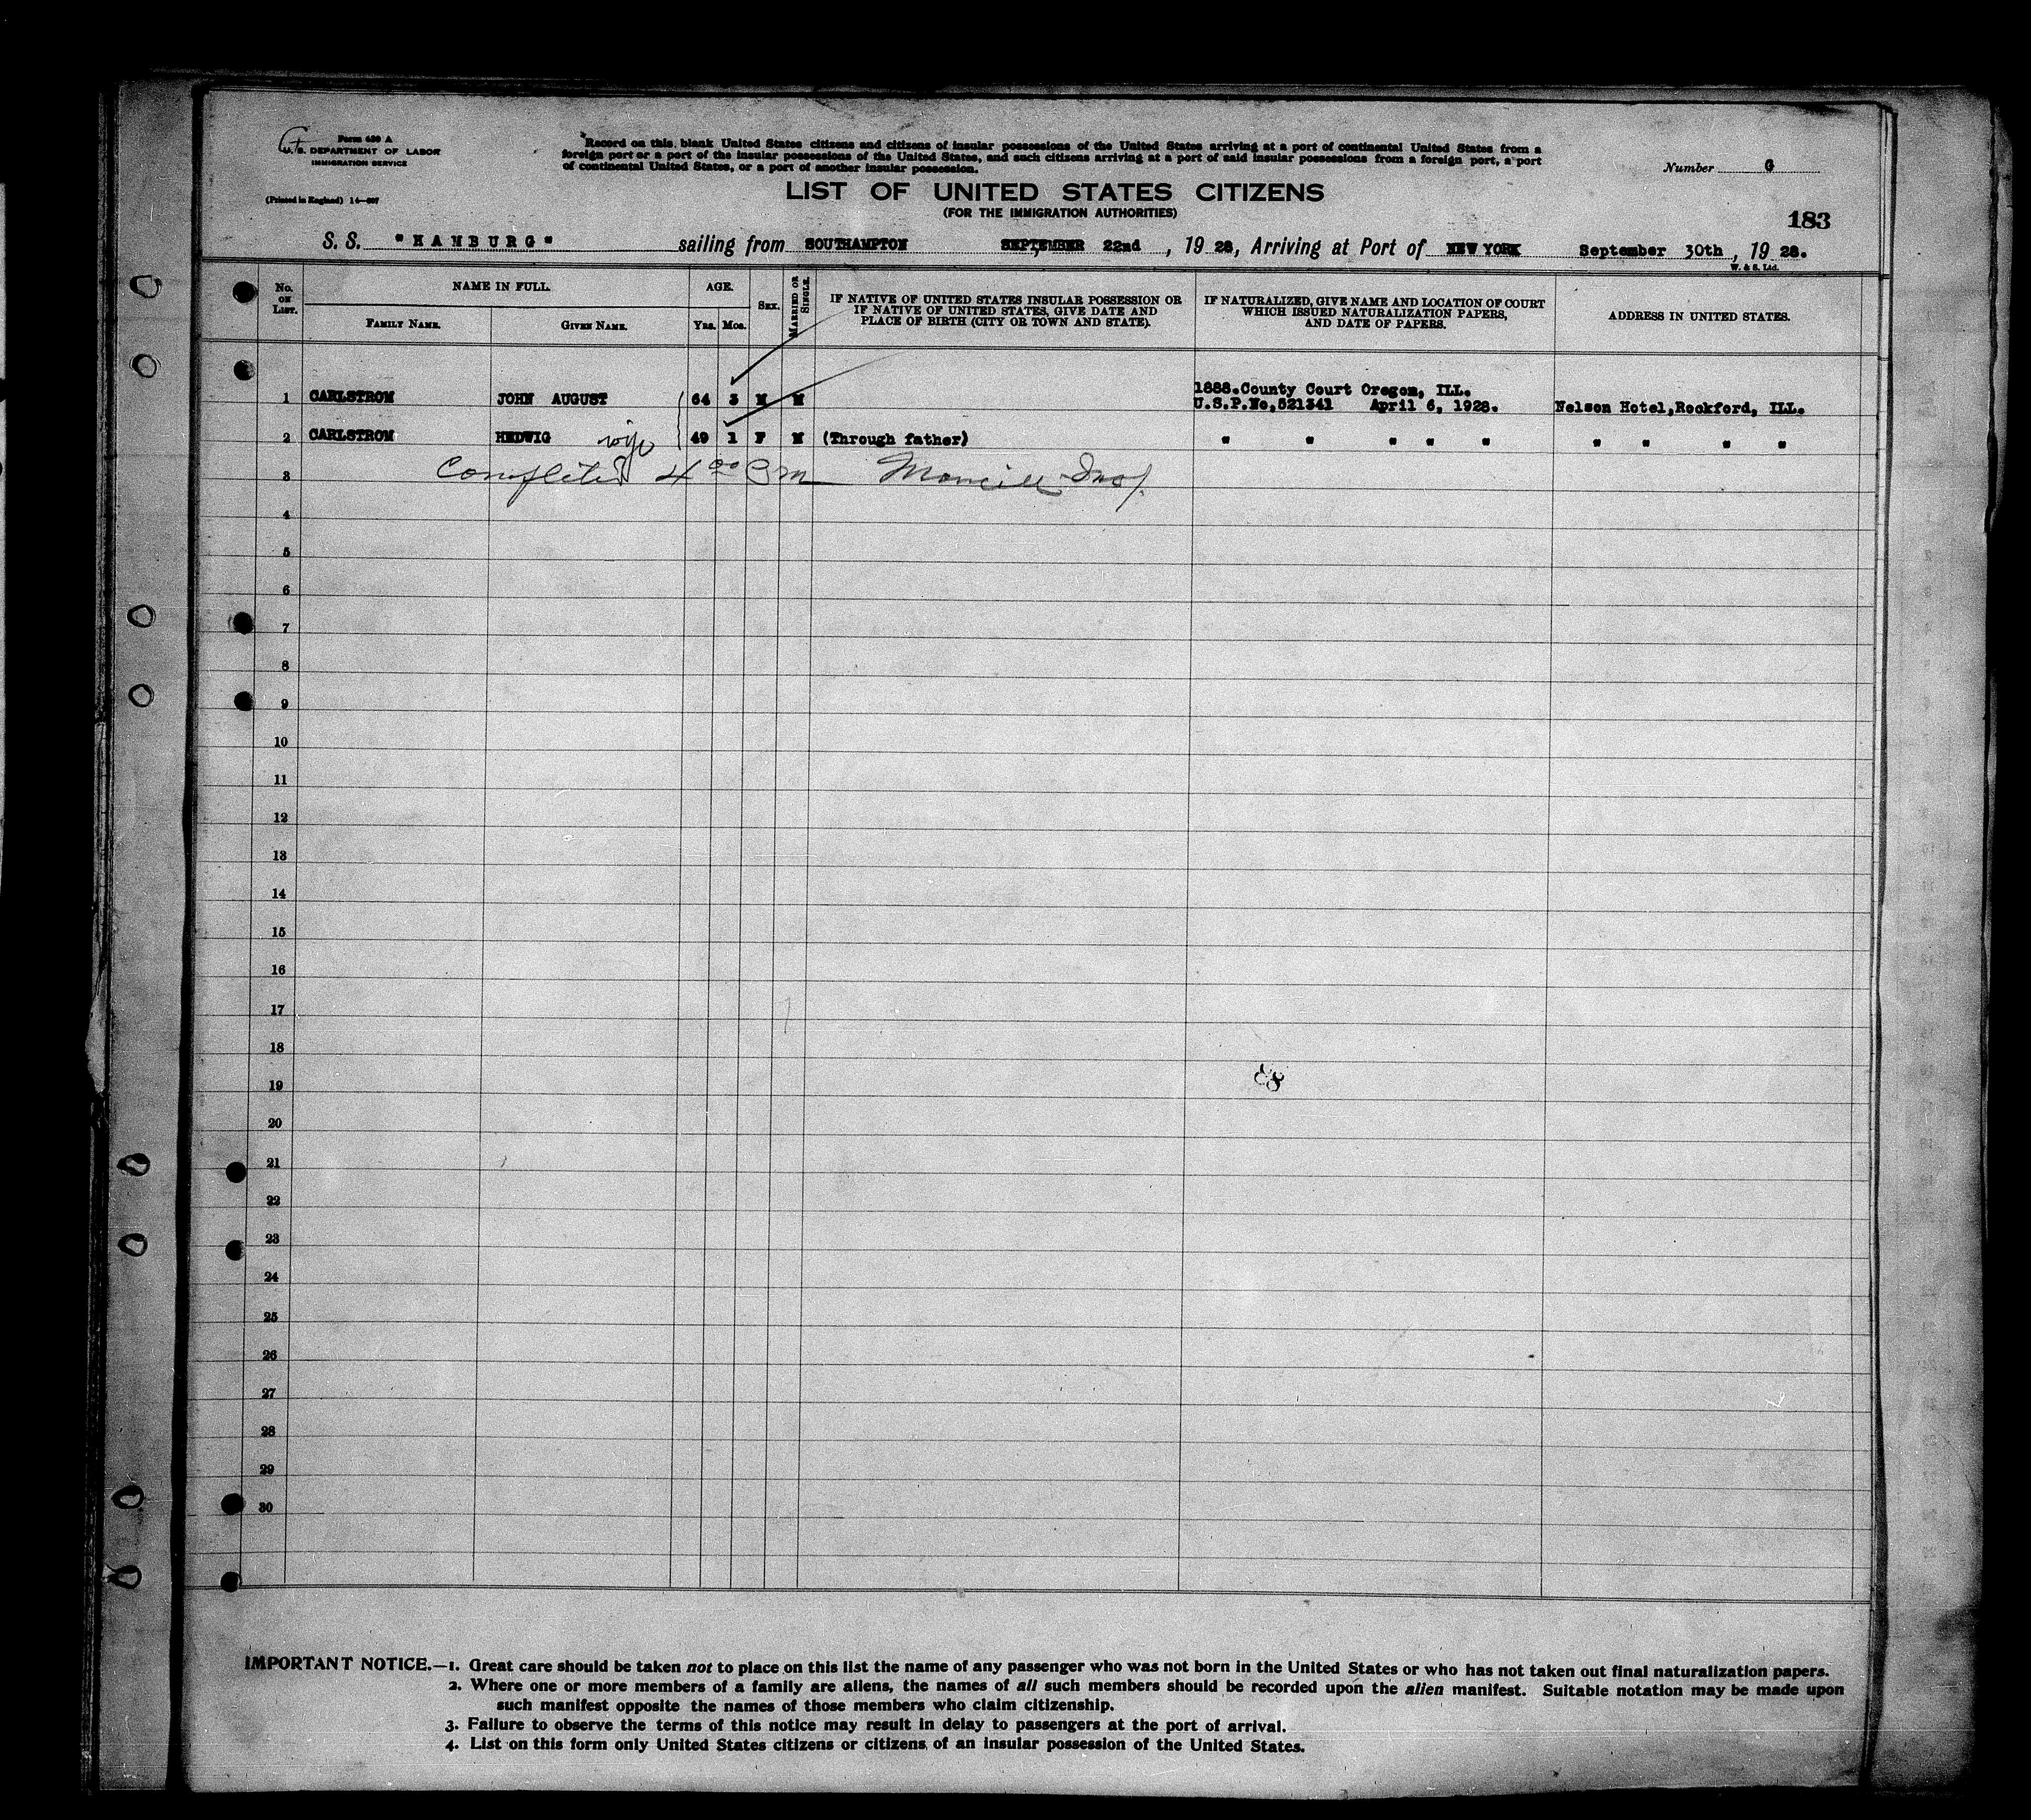 Form 630 A
U.S. DEPARTMENT OF LABOR
IMMIGRATION SERVICE
(Printed in England) 14—607
Record on this blank United States citizens and citizens of insular possessions of the United States arriving at a port of continental United States from a
foreign port or a port of the insular possessions of the United States, and such citizens arriving at a port of said insular possessions from a foreign port, a port
of continental United States, or a port of another insular possession.
Number G
LIST OF UNITED STATES CITIZENS
(FOR THE IMMIGRATION AUTHORITIES)
183
S. S. "HAMBURG" sailing from SOUTHAMPTON SEPTEMBER 22nd, 19 28, Arriving at Port of NEW YORK September 30th, 19 28.
W. & S. Ltd.
No. ON LIST. NAME IN FULL. AGE. SEX. MARRIED OR SINGLE. IF NATIVE OF UNITED STATES INSULAR POSSESSION OR IF NATIVE OF UNITED STATES, GIVE DATE AND PLACE OF BIRTH (CITY OR TOWN AND STATE). IF NATURALIZED, GIVE NAME AND LOCATION OF COURT WHICH ISSUED NATURALIZATION PAPERS, AND DATE OF PAPERS. ADDRESS IN UNITED STATES.
FAMILY NAME. GIVEN NAME. Yrs. Mos.
1888.County Court Oregon, ILL.
1 CARLSTROM JOHN AUGUST 64 3 M M U.S.P.No,521341 April 6, 1928. Nelson Hotel,Rockford, ILL.
2 CARLSTROM HEDWIG wife 49 1 F M (Through father) " " " " " " " " "
3 Completed 4 00 Pm Insp.
4
5
6
7
8
9
10
11
12
13
14
15
16
17
18
19
20
21
22
23
24
25
26
27
28
29
30
IMPORTANT NOTICE.—1. Great care should be taken not to place on this list the name of any passenger who was not born in the United States or who has not taken out final naturalization papers.
2. Where one or more members of a family are aliens, the names of all such members should be recorded upon the alien manifest. Suitable notation may be made upon
such manifest opposite the names of those members who claim citizenship.
3. Failure to observe the terms of this notice may result in delay to passengers at the port of arrival.
4. List on this form only United States citizens or citizens of an insular possession of the United States.